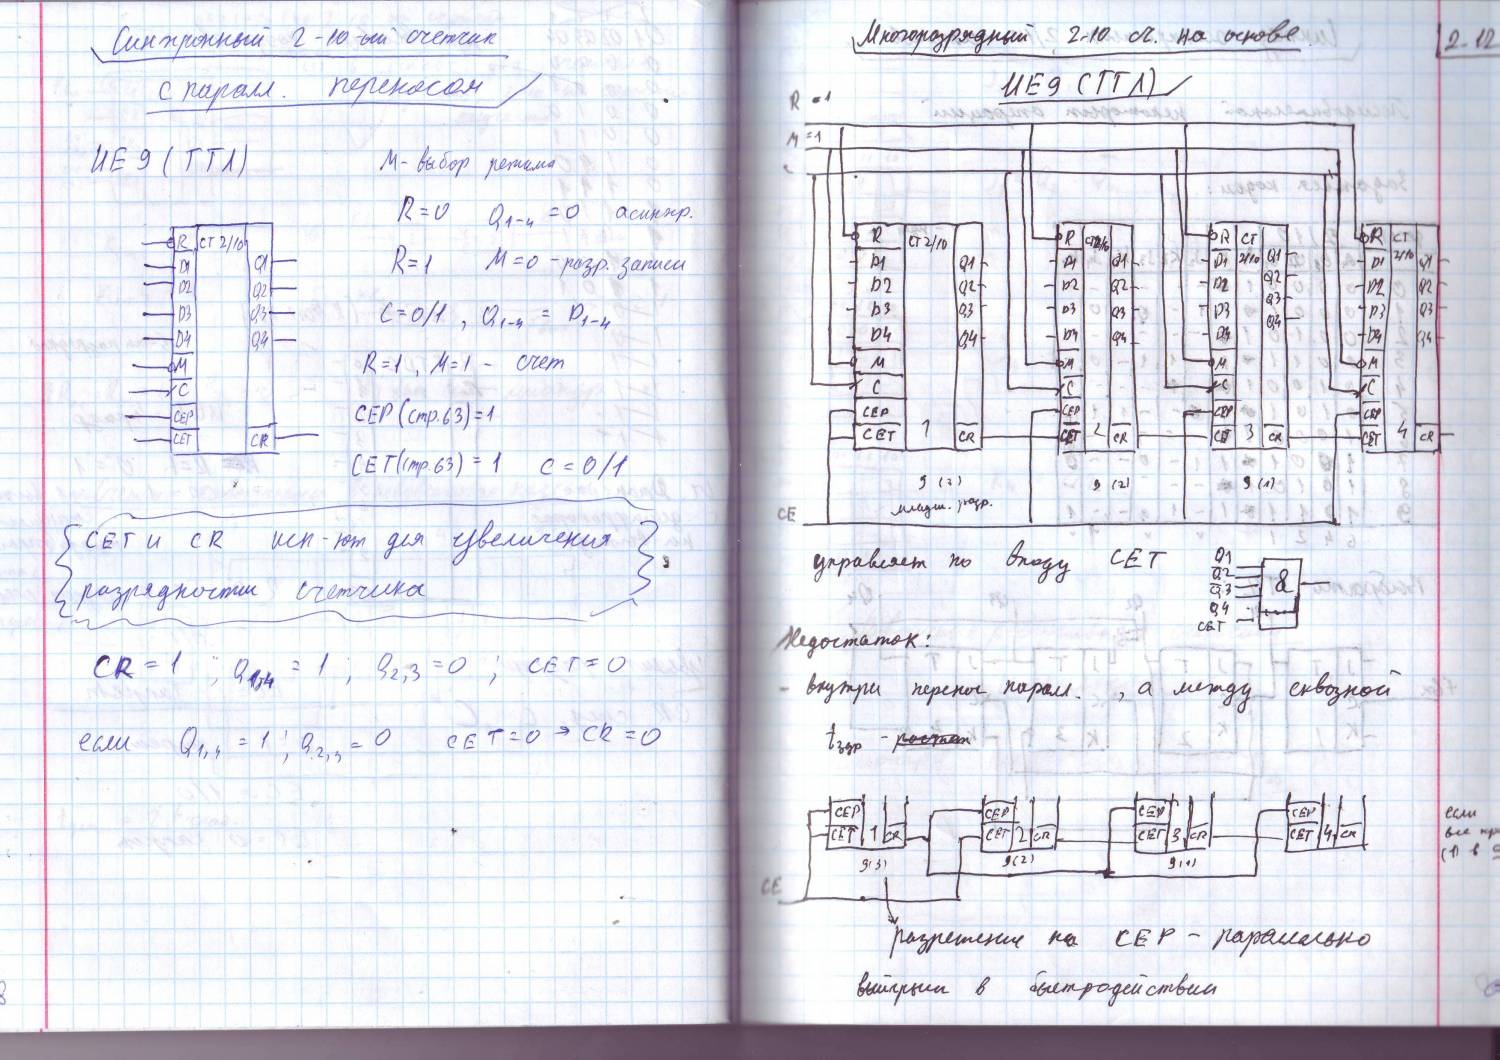 Синхронный 2-10-ый счетчик
с паралл. переносом
ИЕ9 (ТТЛ)
М- выбор режима
R=0 Q1-4 =0 асинхр.
R=1 M=0 - разр. записи
C=0/1 , Q1-4 = D1-4
R=1, M=1 - счет
CEP (стр.63)=1
CET (стр.63) = 1 C=0/1
R CT2/10
D1 Q1
D2 Q2
D3 Q3
D4 Q4
M
C
CEP
CET CR
CET и CR исп-ют для увеличения
разрядности счетчика
CR=1 ; Q1,4 = 1 ; Q2,3 =0 ; CET=0
если Q1,4 =1 ; Q2,3 =0 CET=0 → CR=0
Многоразрядный 2-10 сч. на основе
2-12
ИЕ9 (ТТЛ)
R=1
M=1
R CT2/10 R CT2/10 R CT 2/10 R CT 2/10
D1 Q1 D1 Q1 D1 Q1 D1 Q1
D2 Q2 D2 Q2 D2 Q2 D2 Q2
D3 Q3 D3 Q3 D3 Q3 D3 Q3
D4 Q4 D4 Q4 D4 Q4 D4 Q4
M M M M
C C C C
CEP CEP CEP CEP
CET 1 CR CET 2 CR CET 3 CR CET 4 CR
9 (2) 9 (1)
младш. разр.
CE
управляет по входу CET
Q1
Q2
Q3
Q4
CET
&
Недостаток:
- внутри перенос паралл. , а между сквозной
tзар -
CEP CEP CEP CEP
CET 1 CR CET 2 CR CET 3 CR CET 4 CR
9(3) 9(2) 9(1)
CE
если
все
(1) в 9
разрешение на CEP - параллельно
выигрыш в быстродействии